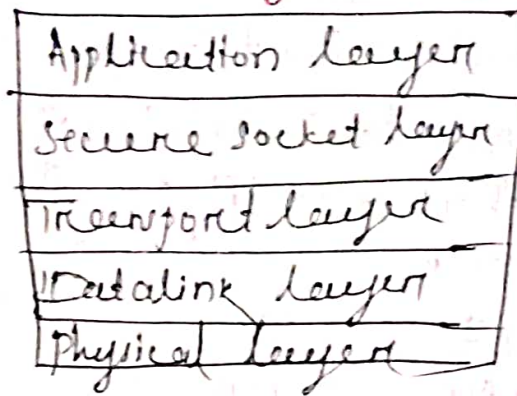 Application layer
Secure Socket layer
Transport layer
Datalink layer
Physical layer